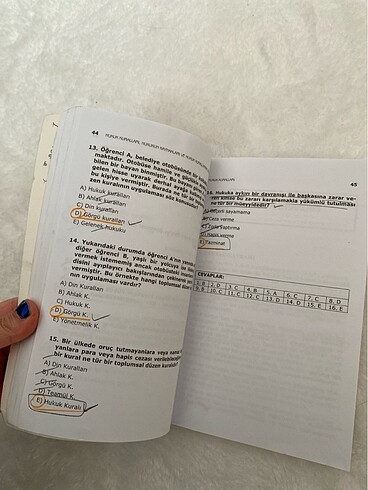 44
HUKUK KURALLARI, HUKUKUN KAYNAKLARI VE
13. Öğrenci A, belediye otobüsünde
maktadır. Otobüse hamile ve güçlükle
bilen bir bayan binmiştir. Bu
gelen hisse uyarak derhal ayağa
bu kişiye vermiştir. Burada ne tür
zen kuralının uygulaması söz konusudur?
A) Hukuk kuralları
B) Ahlak kuralları
C) Din kuralları
D) Görgü kuralları
E) Gelenek hukuku
14. Yukarıdaki durumda öğrenci A'nın
diğer öğrenci B, yaşlı bir yolcuya
vermek istememiş ancak otobüsteki
disini ayıplayıcı bakışlarından çekinerek yer
vermiştir. Bu örnekte hangi toplumsal düzen
nın uygulaması vardır?
A) Din Kuralları
B) Ahlak K.
C) Hukuk K.
D) Görgü K.
E) Yönetmelik K.
15. Bir ülkede oruç tutmayanlara veya
yanlara para veya hapis cezası verilebileceği
bir kural ne tür bir toplumsal düzen kuralıdır?
A) Din Kuralları
B) Ahlak K.
C) Görgü K.
D) Teamül K.
E) Hukuk Kuralı
KURALLARI
45
16. Hukuka aykırı bir davranışı ile başkasına zarar ve-
ren kimse bu zararı karşılamakla yükümlü tutulması
ne tür bir müeyyidedir?
sayamama
B) Ceza verme
yaptırma
verme
E) Tazminat
CEVAPLAR:
1. B 2. D 3. C 4. C 5. A 6. C 7. C 8. D
9. B 10. C 11. C 12. C 13. D 14. D 15. E 16. E